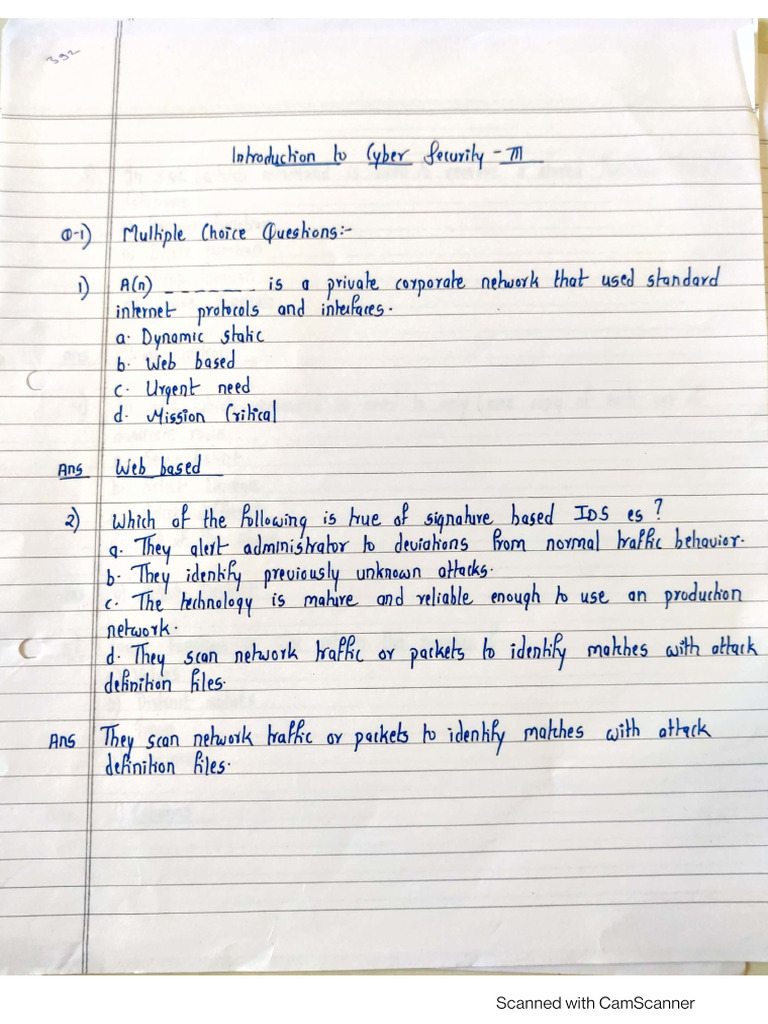 392
Introduction to Cyber Security - III
Q-1) Multiple Choice Questions:-
1) A(n) _______ is a private corporate network that used standard
internet protocols and interfaces.
a. Dynamic static
b. Web based
c. Urgent need
d. Mission Critical
Ans Web based
2) Which of the following is true of signature based IDS es?
a. They alert administrator to deviations from normal traffic behavior.
b. They identify previously unknown attacks.
c. The technology is mature and reliable enough to use on production
network.
d. They scan network traffic or packets to identify matches with attack
definition files.
Ans They scan network traffic or packets to identify matches with attack
definition files.
Scanned with CamScanner